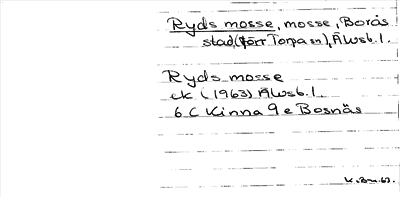 Ryds mosse, mosse, Borås
stad (förr Torpa sn), Älvsb. l.
Ryds mosse
ek (1963) Älvsb. l.
6 C Kinna 9 e Bosnäs